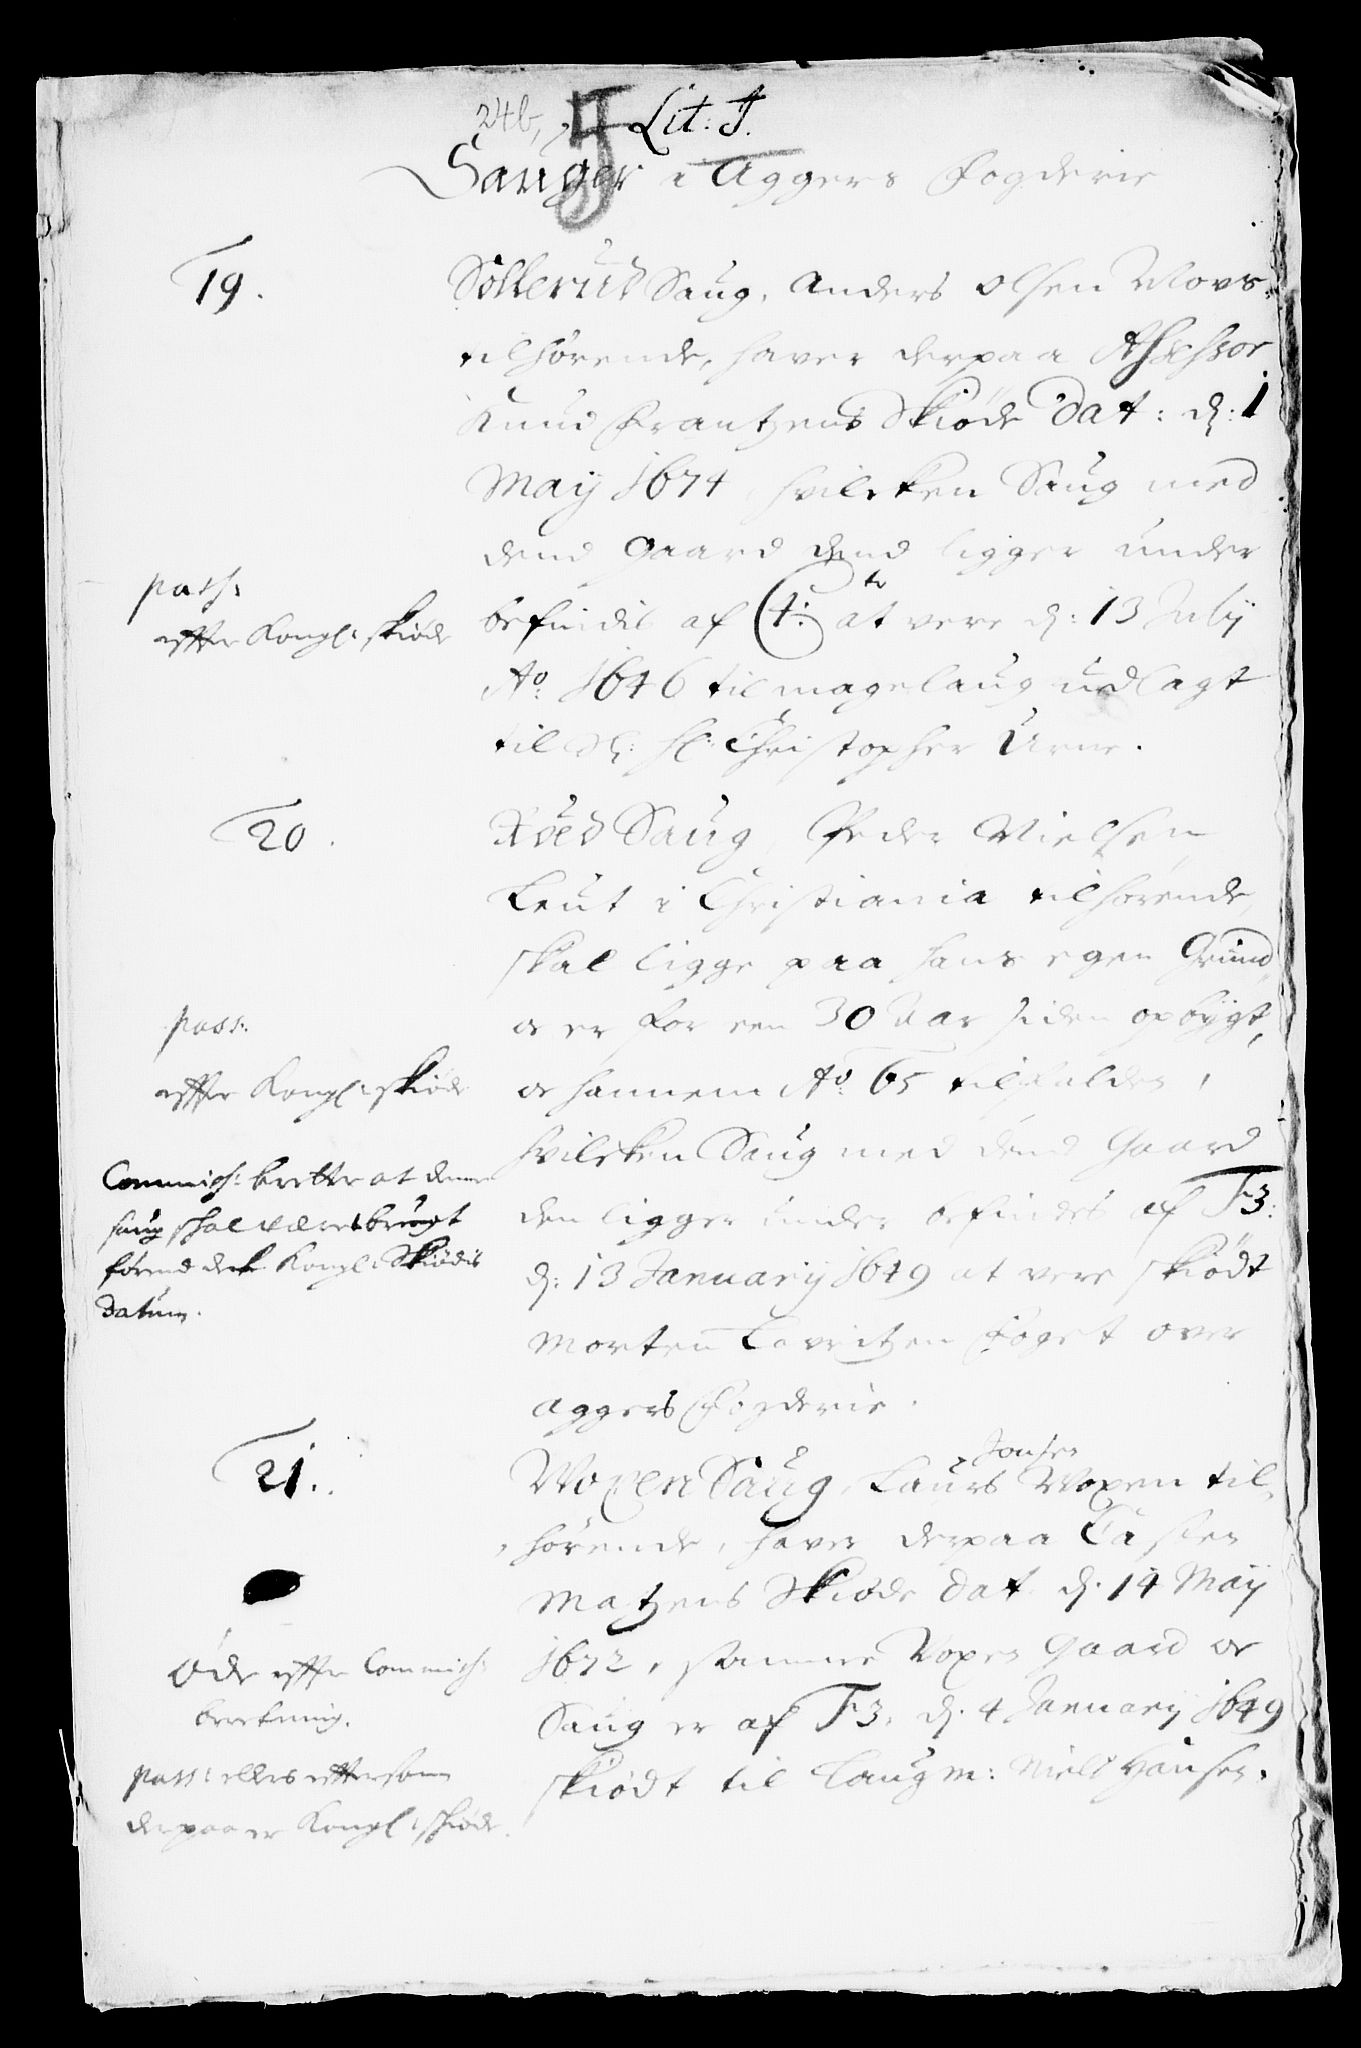 24b, 5 Lit: J.
Sauger i Aggers Fogderie
19.
Sollerud Saug, Anders Olsen Movs
tilhørende, haver derpaa Assessor
Knud Frantzens Skiøde Dat: d: 1
May 1674, hvilcken Saug med
dend Gaard dend ligger under
befindis af at vere d: 13 July
Ao: 1646 til magelaug udlagt
til Sl: Hr: Christopher Urne.
pass:
effter Kongl: skiøde
20.
Røed Saug, Peder Nielsen
Leut i Christiania tilhørende,
skal ligge paa hans egen Grund
oc er for een 30 Aar siden opbygt,
oc hannem Ao: 65 tilfalden,
hvilcken Saug med dend Gaard
den ligger under befindes af F3:
d: 13 January 1649 at vere skiødt
Morten Lavritzen Foget over
Aggers Fogderie.
pass:
effter Kongl: skiøde
Commiss: beretter at denne
saug skal være brugt
førend det Kongl: Skiødis
Datum.
21.
Woxen Saug, Laurs Jonsen Woxen til
hørende, haver derpaa Casten
Matzens Skiøde Dat. d: 14 May
1672, samme Voxen Gaard oc
Saug er af F3, d. 4 January 1649
skiødt til Laugm: Niels Hansen.
Øde effter Commiss:
beretning.
pass: ellers effter som
derpaa er Kongl: skiøde.